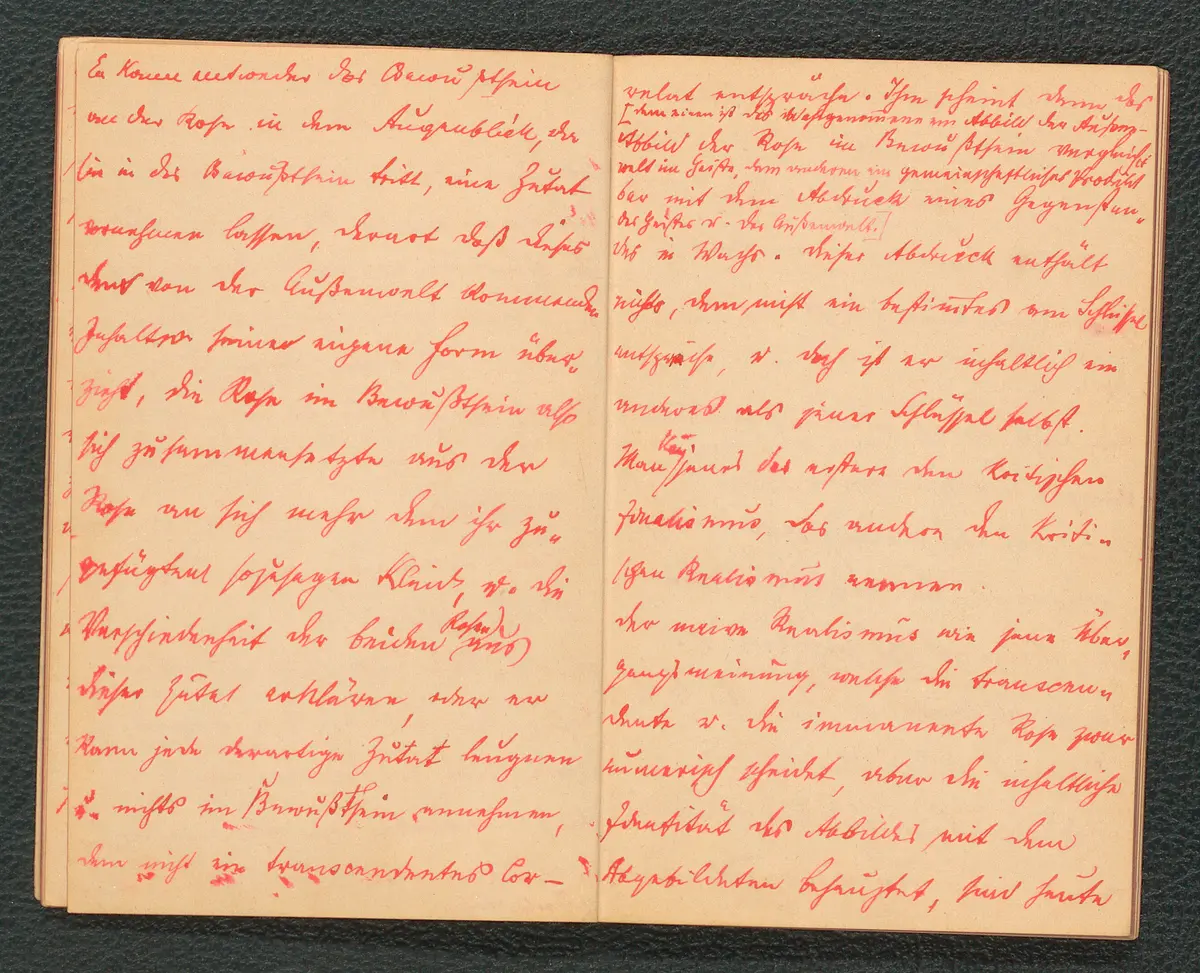 Er kann entweder das Bewußtsein
an der Rose in dem Augenblick, da
sie in das Bewußtsein tritt, eine Zutat
vornehmen lassen, derart daß dieses
den von der Außenwelt kommenden
Inhalt seiner eigene Form über-
zieht, die Rose im Bewußtsein also
sich zusammensetzte aus der
Rose an sich mehr dem ihr zu-
gefügten sozusagen Kleid, u. die
Verschiedenheit der beiden Rosen aus
dieser Zutat erklären, oder er
kann jede derartige Zutat leugnen
u. nichts im Bewußtsein annehmen,
dem nicht ein transcendentes Cor-
relat entspräche. Ihm scheint dann das
[dem einen ist das Wahrgenommene ein Abbild der Außen-
Abbild der Rose im Bewußtsein vergleich-
welt im Geiste, dem anderen ein gemeinschaftliches Produkt
bar mit dem Abdruck eines Gegenstan-
des Geistes u. der Außenwelt.]
des in Wachs. Dieser Abdruck enthält
nichts, dem nicht ein bestimtes am Schlüssel
entspräche, u. doch ist er inhaltlich ein
anderes als jener Schlüssel selbst.
Man kann das erstere den kritischen
Idealismus, das andere den kriti-
schen Realismus nennen.
Der naive Realismus wie jene Über-
gangsmeinung, welche die transcen-
dente u. die immanente Rose zwar
numerisch scheidet, aber die inhaltliche
Identität des Abbildes mit dem
Abgebildeten behauptet, sind heute